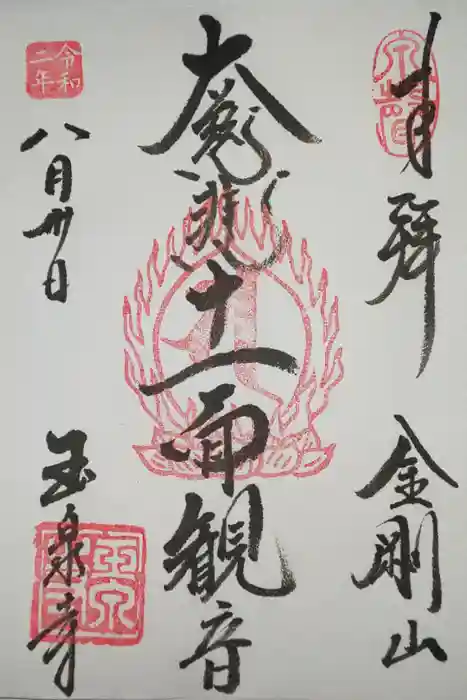 奉拝
金剛山
大慈悲十一面観音
令和
二年
八月卅日
玉泉寺